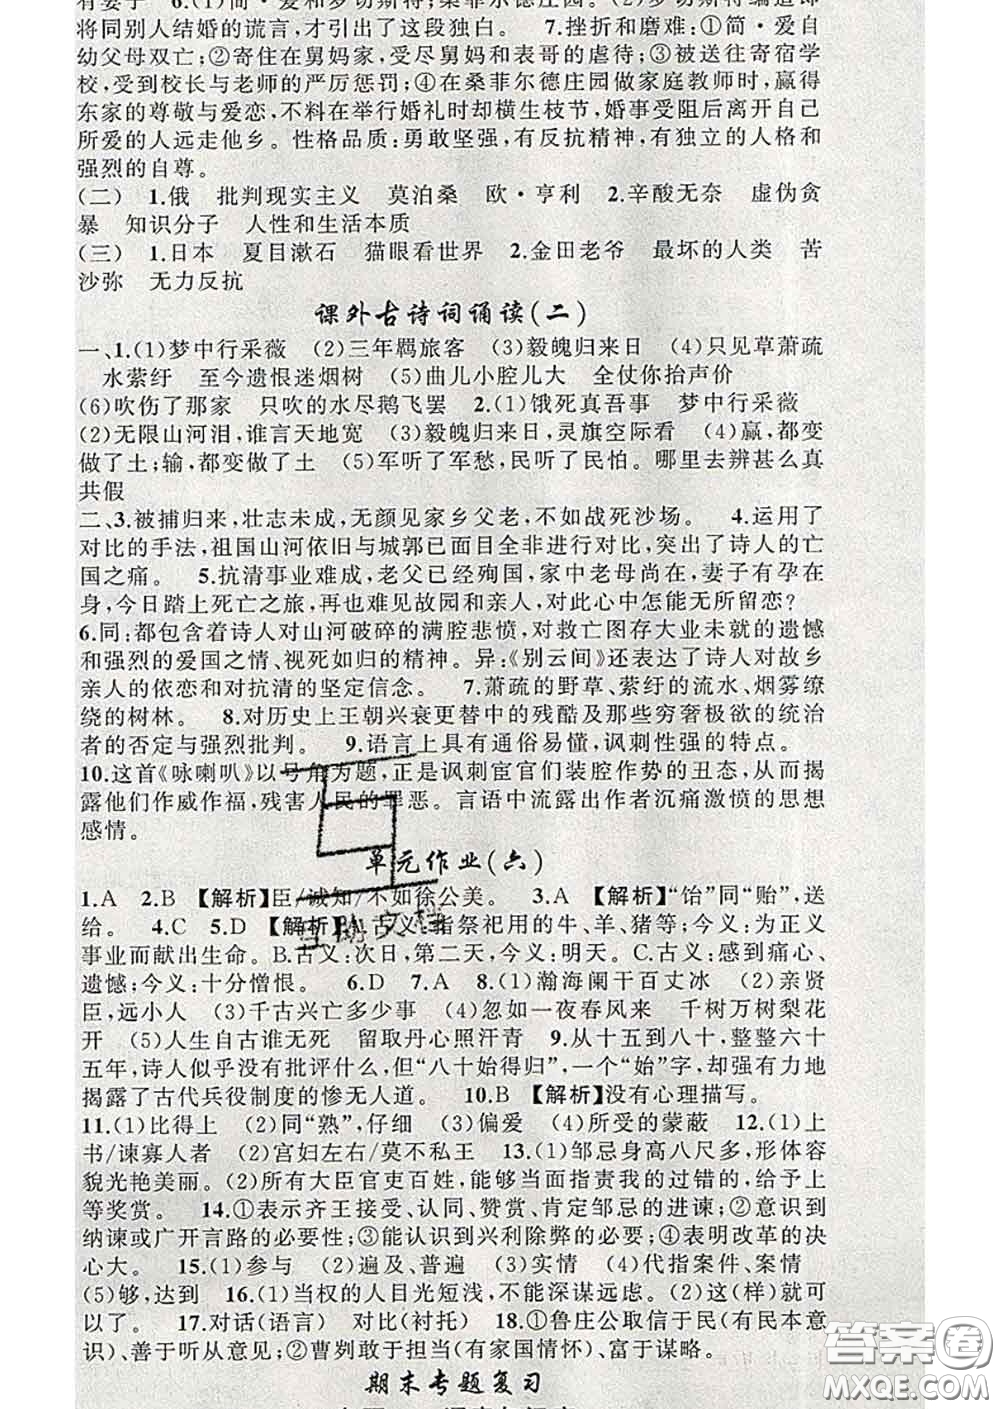 将同别人结婚的谎言,才引出了这段独白。 7.挫折和磨难:①简·爱自
幼父母双亡;②寄住在舅妈家,受尽舅妈和表哥的虐待;③被送往寄宿学
校,受到校长与老师的严厉惩罚;④在桑菲尔德庄园做家庭教师时,赢得
东家的尊敬与爱恋,不料在举行婚礼时却横生枝节,婚事受阻后离开自己
所爱的人远走他乡。性格品质:勇敢坚强,有反抗精神,有独立的人格和
强烈的自尊。
(二) 1.俄 批判现实主义 莫泊桑 欧·亨利 2.辛酸无奈 虚伪贪
暴 知识分子 人性和生活本质
(三) 1.日本 夏目漱石 猫眼看世界 2.金田老爷 最坏的人类 苦
沙弥 无力反抗
课外古诗词诵读(二)
一、1.(1)梦中行采薇 (2)三年羁旅客 (3)毅魄归来日 (4)只见草萧疏
水萦纡 至今遗恨迷烟树 (5)曲儿小腔儿大 全仗你抬声价
(6)吹伤了那家 只吹的水尽鹅飞罢 2.(1)饿死真吾事 梦中行采薇
(2)无限山河泪,谁言天地宽 (3)毅魄归来日,灵旗空际看 (4)赢,都变
做了土;输,都变做了土 (5)军听了军愁,民听了民怕。哪里去辨甚么真
共假
二、3.被捕归来,壮志未成,无颜见家乡父老,不如战死沙场。 4.运用了
对比的手法,祖国山河依旧与城郭已面目全非进行对比,突出了诗人的亡
国之痛。 5.抗清事业难成,老父已经殉国,家中老母尚在,妻子有孕在
身,今日踏上死亡之旅,再也难见故园和亲人,对此心中怎能无所留恋?
6.同:都包含着诗人对山河破碎的满腔悲愤,对救亡图存大业未就的遗憾
和强烈的爱国之情、视死如归的精神。异:《别云间》还表达了诗人对故乡
亲人的依恋和对抗清的坚定信念。 7.萧疏的野草、萦纡的流水、烟雾缭
绕的树林。 8.对历史上王朝兴衰更替中的残酷及那些穷奢极欲的统治
者的否定与强烈批判。 9.语言上具有通俗易懂,讽刺性强的特点。
10.这首《咏喇叭》以号角为题,正是讽刺宦官们装腔作势的丑态,从而揭
露他们作威作福,残害人民的罪恶。言语中流露出作者沉痛激愤的思想
感情。
单元作业(六)
1.A 2.B 【解析】臣/诚知/不如徐公美。 3.A 【解析】“饴”同“贻”,送
给。 4.C 5.D 【解析】A.古义:指祭祀用的牛、羊、猪等;今义:为正义
事业而献出生命。B.古义:次日,第二天,今义:明天。C.古义:感到痛心、
遗憾;今义:十分憎恨。 6.D 7.A 8.(1)瀚海阑干百丈冰 (2)亲贤
臣,远小人 (3)千古兴亡多少事 (4)忽如一夜春风来 千树万树梨花
开 (5)人生自古谁无死 留取丹心照汗青 9.从十五到八十,整整六十
五年,诗人似乎没有批评什么,但“八十始得归”,一个“始”字,却强有力地
揭露了古代兵役制度的惨无人道。 10.B 【解析】没有心理描写。
11.(1)比得上 (2)同“熟”,仔细 (3)偏爱 (4)所受的蒙蔽 12.(1)上
书/谏寡人者 (2)宫妇左右/莫不私王 13.(1)邹忌身高八尺多,形体容
貌光艳美丽。(2)所有大臣官吏百姓,能够当面指责我的过错的,给予上
等奖赏。 14.①表示齐王接受、认同、赞赏、肯定邹忌的进谏;②意识到
纳谏或广开言路的必要性;③能认识到兴利除弊的必要;④表明改革的决
心大。 15.(1)参与 (2)遍及、普遍 (3)实情 (4)代指案件、案情
(5)够,达到 16.(1)当权的人目光短浅,不能深谋远虑。(2)这(样)就可
以了。 17.对话(语言) 对比(衬托) 18.①鲁庄公取信于民(有民本意
识)、善于听从意见;②曹刿敢于担当(有家国情怀)、富于谋略。
期末专题复习
答案圈
MXQE.COM